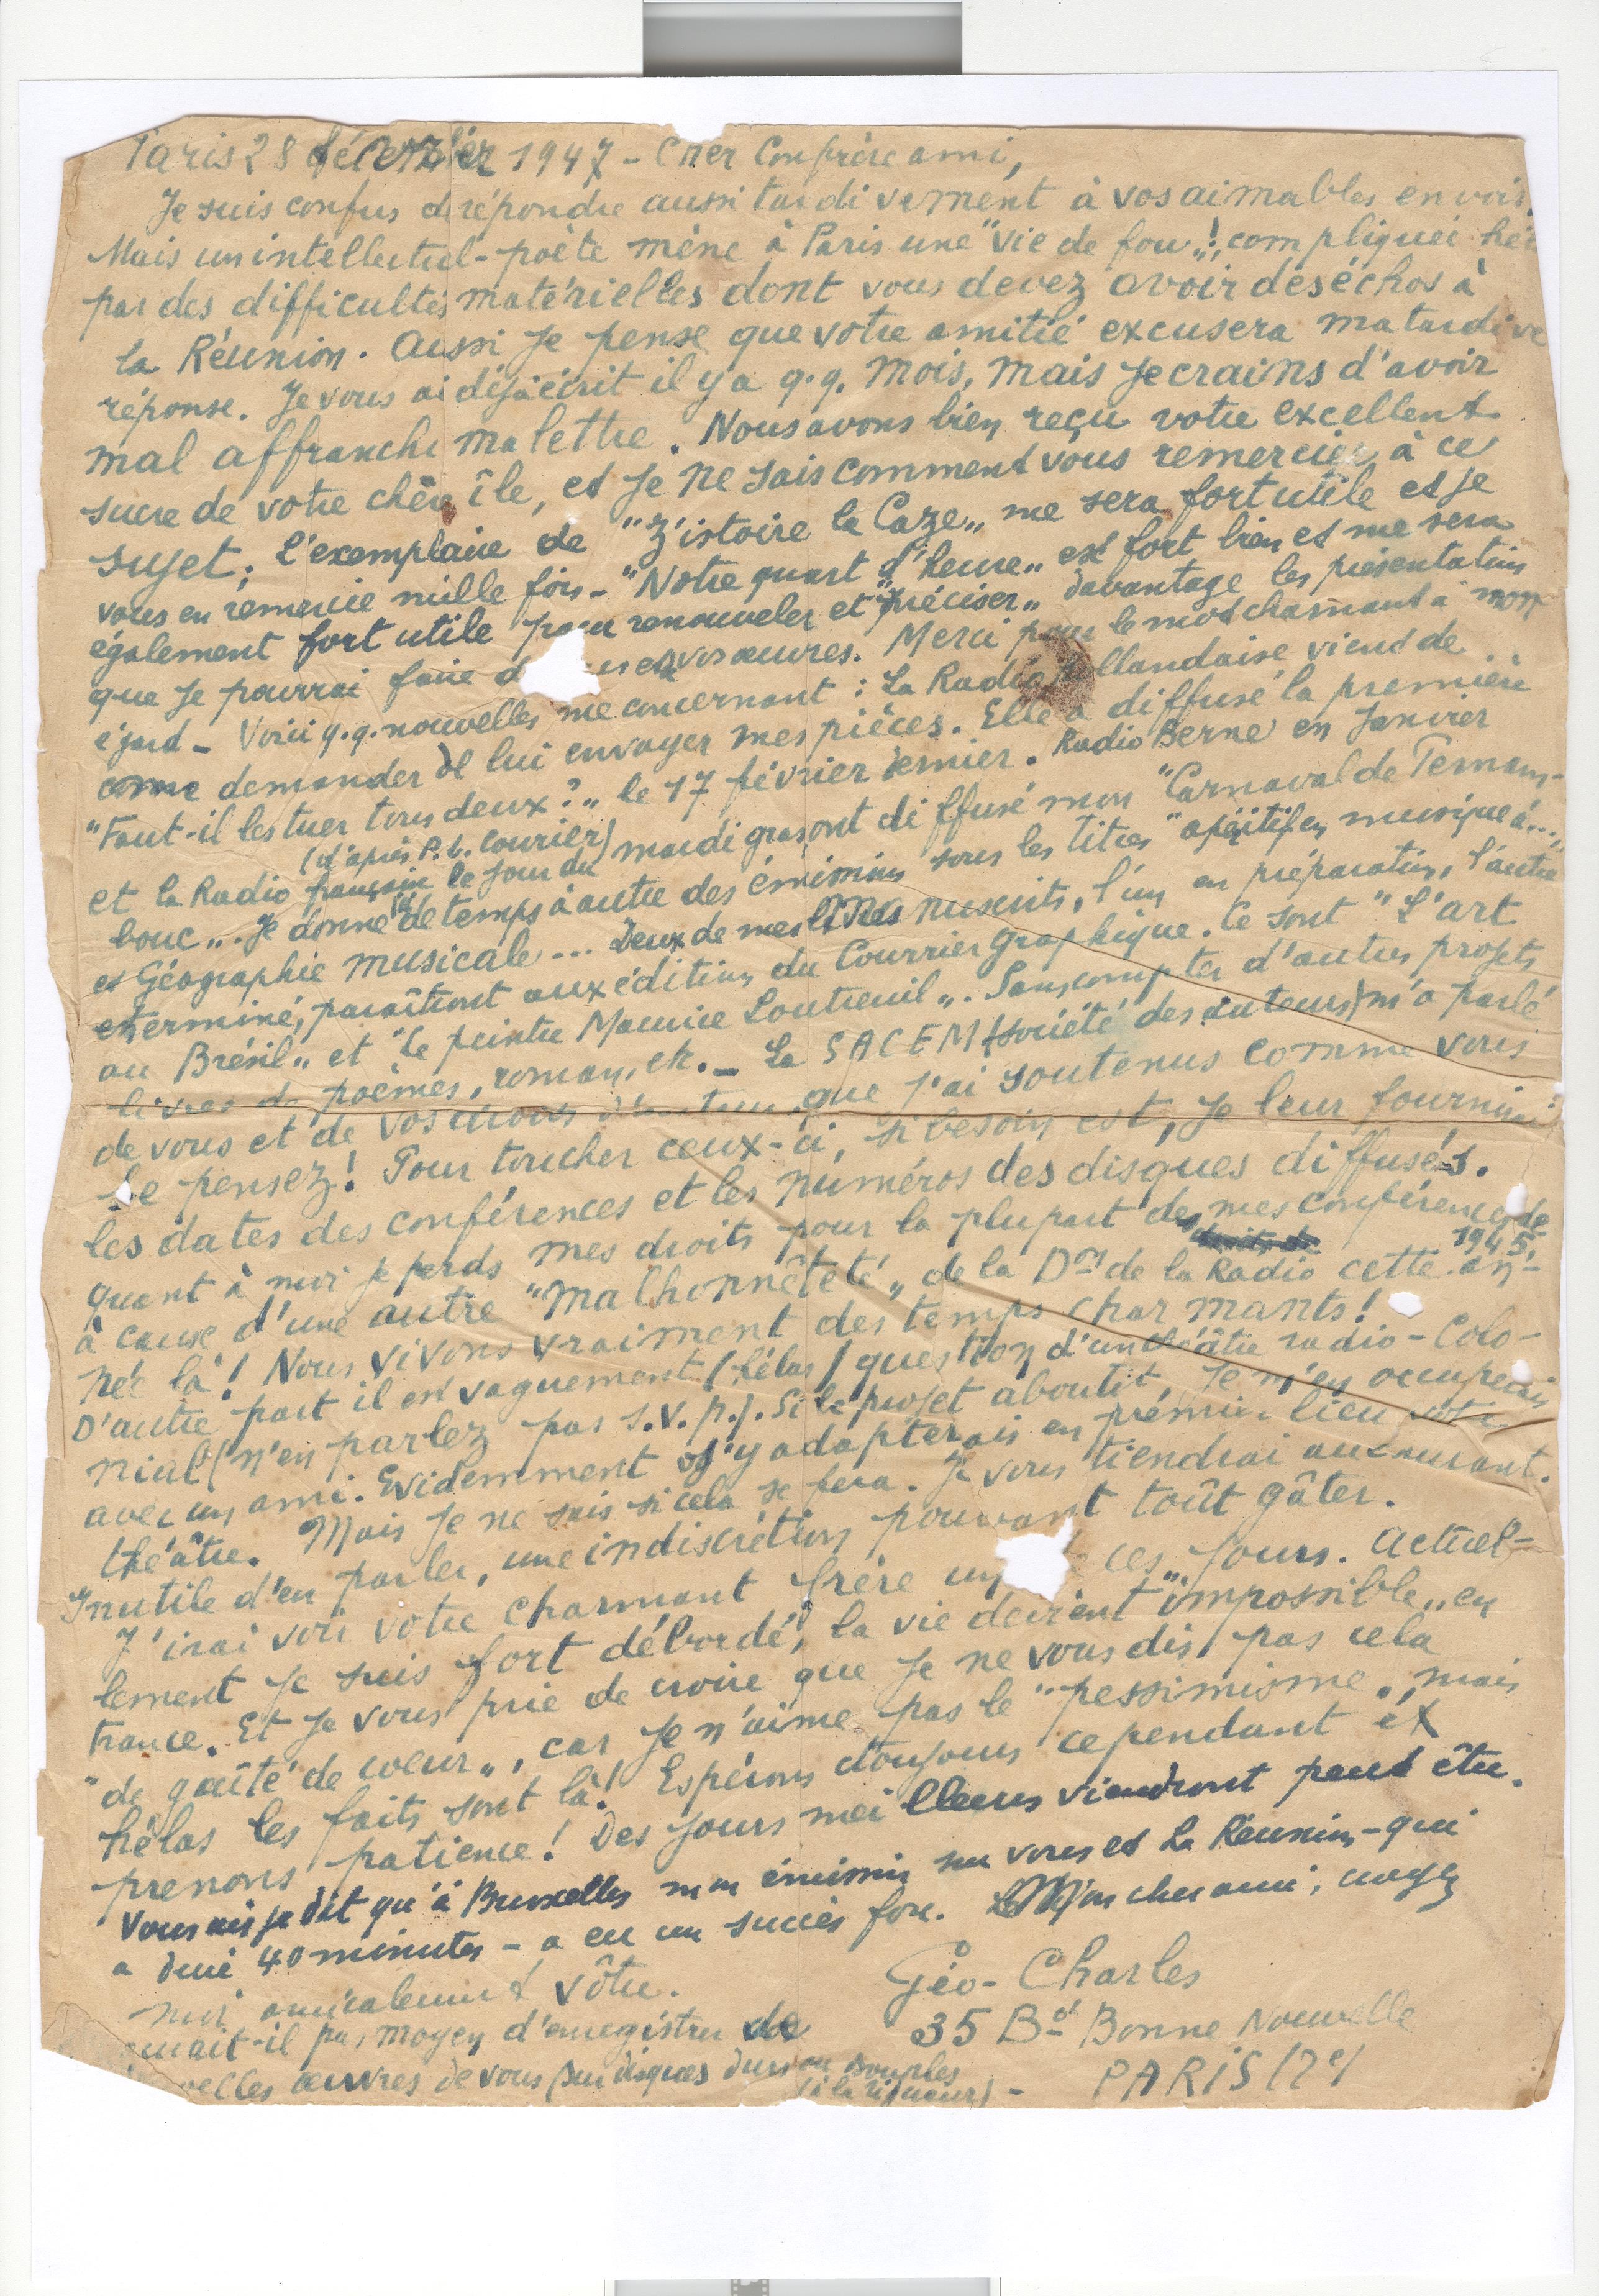 Paris 28 décembre 1947 - Cher Confrère ami,
Je suis confus de répondre aussi tardivement à vos aimables envois.
Mais un intellectuel-poète mène à Paris une "vie de fou„! compliquée
par des difficultés matérielles dont vous devez avoir des échos à
la Réunion. Aussi je pense que votre amitié excusera ma tardive
réponse. Je vous ai déjà écrit il y a q.q. mois, mais je crains d'avoir
mal affranchi ma lettre. Nous avons bien reçu votre excellent
sucre de votre chère île, et je ne sais comment vous remercier à ce
sujet; L'exemplaire de "Z'istoire la Caze„ me sera fort utile et je
vous en remercie mille fois - "Notre quart d'heure„ est fort bien et me sera
également fort utile pour renouveler et "préciser„ davantage les présentations
que je pourrai faire vos œuvres. Merci pour le mot charmant à mon
égard - Voici q.q. nouvelles me concernant : La Radio Hollandaise vient de
me demander de lui envoyer mes pièces. Elle a diffusé la première
"Faut-il les tuer tous deux?„ le 17 février dernier. Radio Berne en Janvier
et la Radio française le jour du mardi gras ont diffusé mon "Carnaval de
(d'après P.L. Courier)
bouc„. Je donne de temps à autre des émissions sous les titres "apéritif en musique à...„
et Géographie musicale... Deux de mes livres l'un en préparation, l'autre
terminé, paraîtront aux éditions du Courrier Graphique. Ce sont "L'art
au Brésil„ et "Le peintre Maurice Loutreuil„. Sans compter d'autres projets
livres de poèmes, roman, etc. - La SACEM (société des auteurs) m'a parlé
de vous et de vos droits d'auteur que j'ai soutenus comme vous
le pensez! Pour toucher ceux-ci, si besoin est, je leur fournirai
les dates des conférences et les numéros des disques diffusés.
Quant à moi je perds mes droits pour la plupart de mes conférences de
1945,
à cause d'une autre "malhonnêteté„ de la Don de la Radio cette an-
née là! Nous vivons vraiment des temps charmants!
D'autre part il est vaguement (hélas) question d'un théâtre radio-Colo-
nial (n'en parlez pas s.v.p.). Si le projet aboutit, je m'en occuperais
avec un ami. Evidemment j'y adapterais en premier lieu votre
théâtre. Mais je ne sais si cela se fera. Je vous tiendrai au courant.
Inutile d'en parler, une indiscrétion pouvant tout gâter.
J'irai voir votre charmant frère un ces jours. Actuel-
lement je suis fort débordé, la vie devient "impossible„ en
France. Et je vous prie de croire que je ne vous dis pas cela
"de gaîté de cœur„, car je n'aime pas le "pessimisme„ mais
hélas les faits sont là! Espérons toujours cependant et
prenons patience! Des jours meilleurs viendront peut être.
Vous ai-je dit qu'à Bruxelles mon émission sur vous et la Réunion - qui
a duré 40 minutes - a eu un succès fou. Mon cher ami, croyez
moi amicalement vôtre.
Géo-Charles
35 Bd Bonne Nouvelle
PARIS (2e)
-il pas moyen d'enregistrer de
œuvres de vous sur disques durs ou souples
(à la rigueur) -